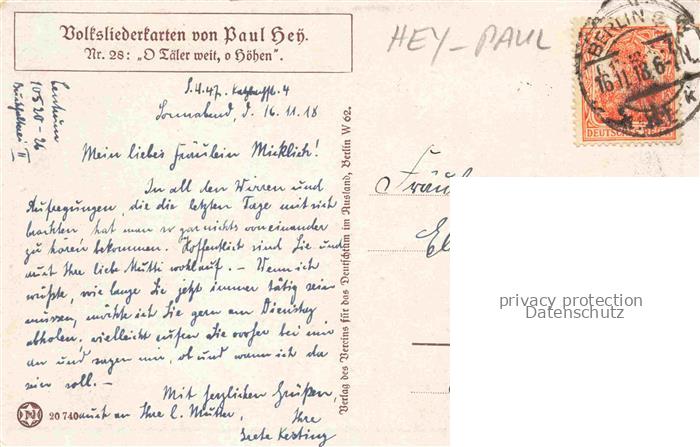 Volksliederkarten von Paul Hey.
Nr. 28: „O Täler weit, o Höhen“.
HEY-PAUL
BERLIN
16.11.18.6-7N.
DEUTSCHES REICH
S.W.47. Katzbachstr. 4
Sonnabend, d. 16.11.18
Centrum
10520-26
Buchhalterei II
Mein liebes Fräulein Micklich!
In all den Wirren und
Aufregungen, die die letzten Tage mit sich
brachten hat man so gar nichts voneinander
zu hören bekommen. Hoffentlich sind Sie und
auch Ihre liebe Mutti wohlauf. – Wenn ich
wüßte, wie lange Sie jetzt immer tätig sein
müssen, möchte ich Sie gern am Dienstag
abholen. Vielleicht rufen Sie vorher bei mir
an und sagen mir, ob und wann ich da
sein soll. –
Mit herzlichen Grüßen,
auch an Ihre l. Mutter,
Ihre
Beete Kesting
20 740
Verlag des Vereins für das Deutschtum im Ausland, Berlin W 62.
Fräul
El
privacy protection
Datenschutz